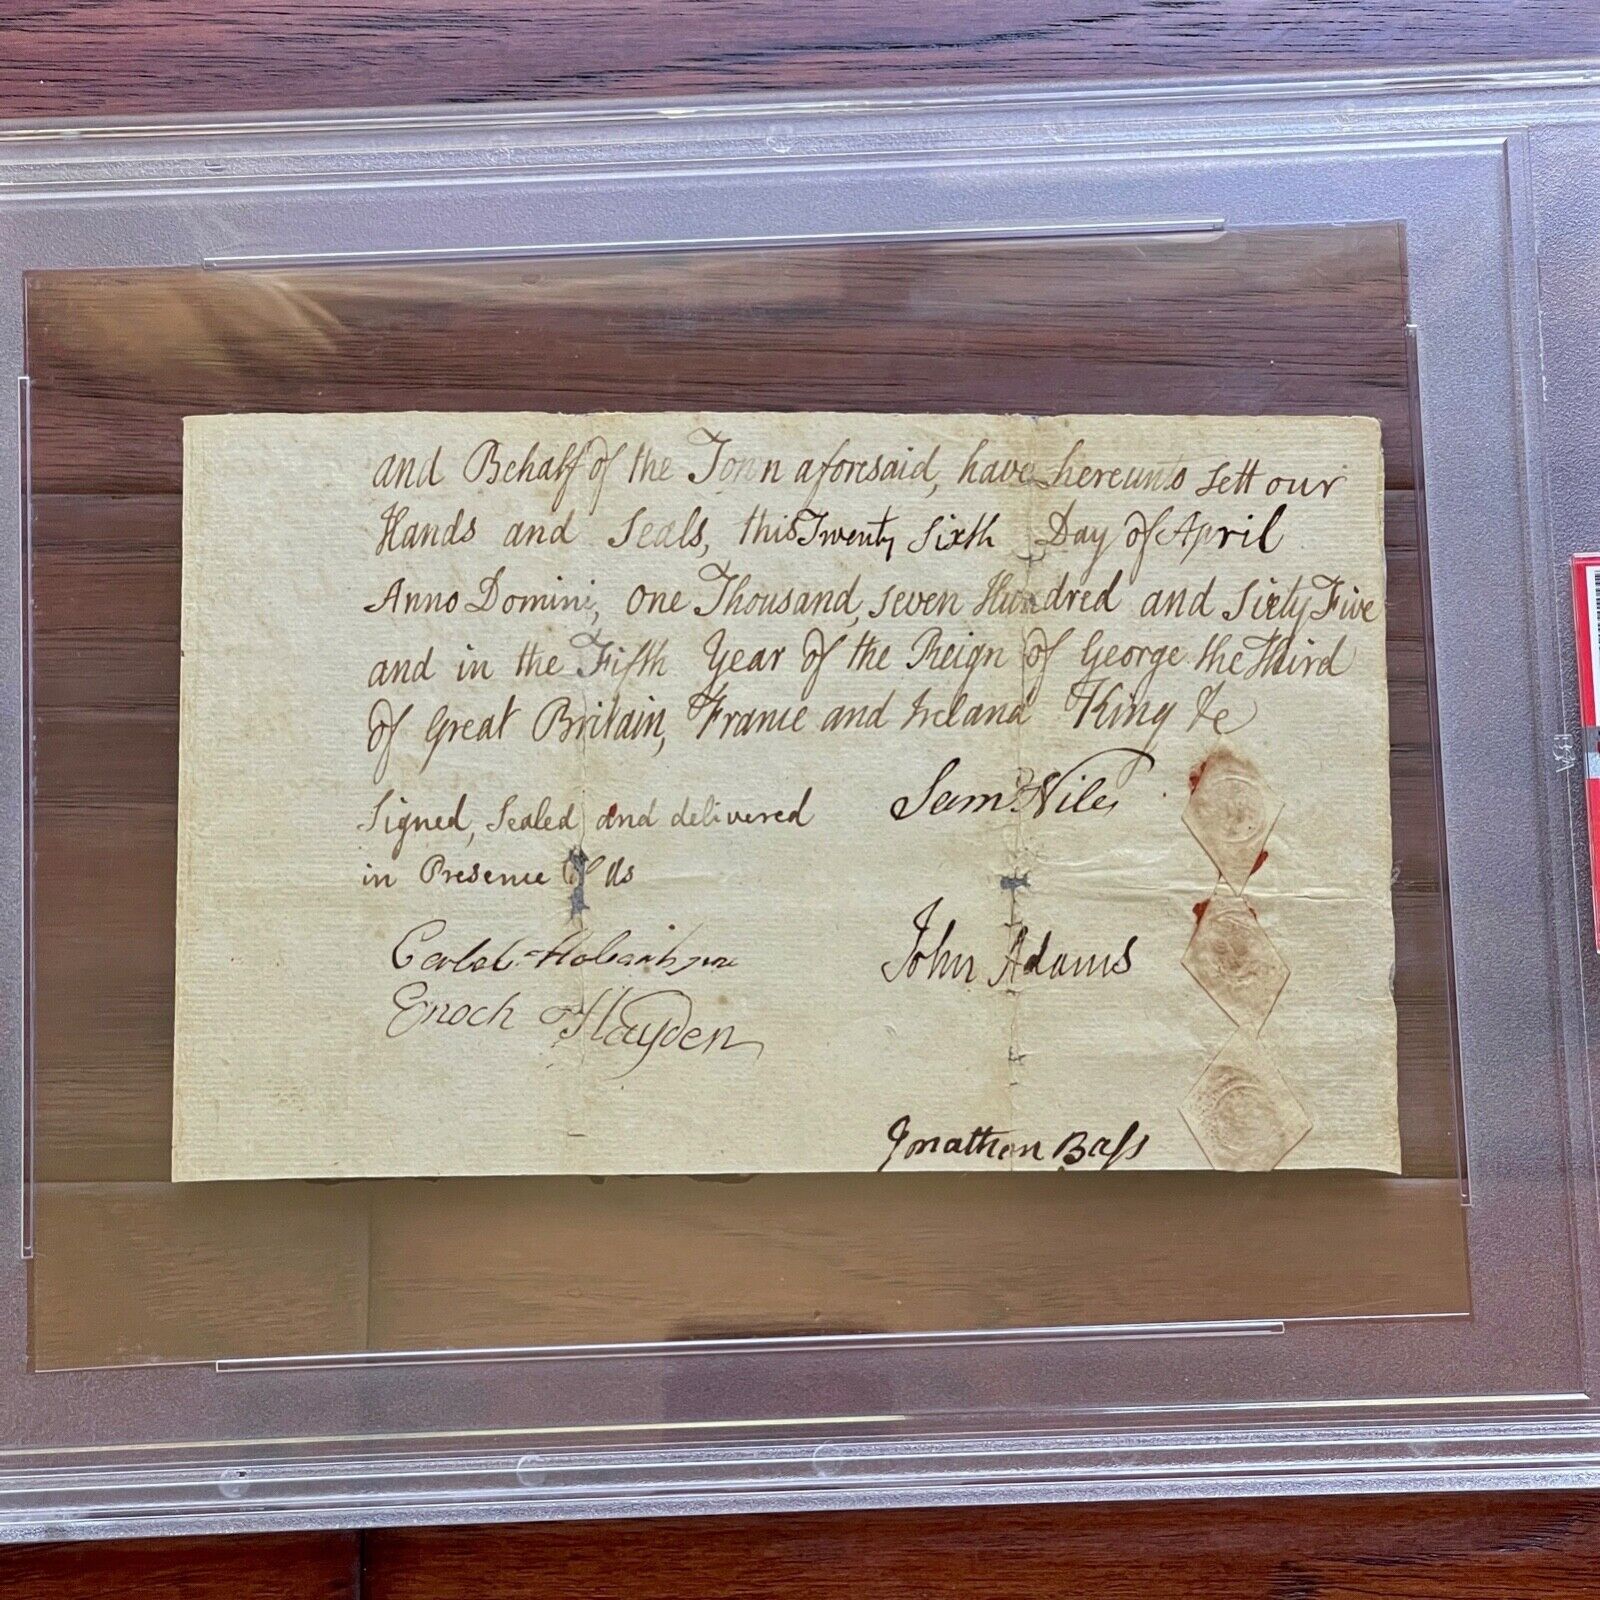 and Behalf of the Town aforesaid, have hereunto sett our
Hands and Seals, this Twenty Sixth Day of April
Anno Domini, One Thousand, seven Hundred and Sixty Five
and in the Fifth Year of the Reign of George the Third
of Great Britain, France and Ireland King &c
Signed, Sealed and delivered
in Presence of Us
Sam. Niles
John Adams
Jonathan Bass
Caleb Hobart June
Enoch Hayden